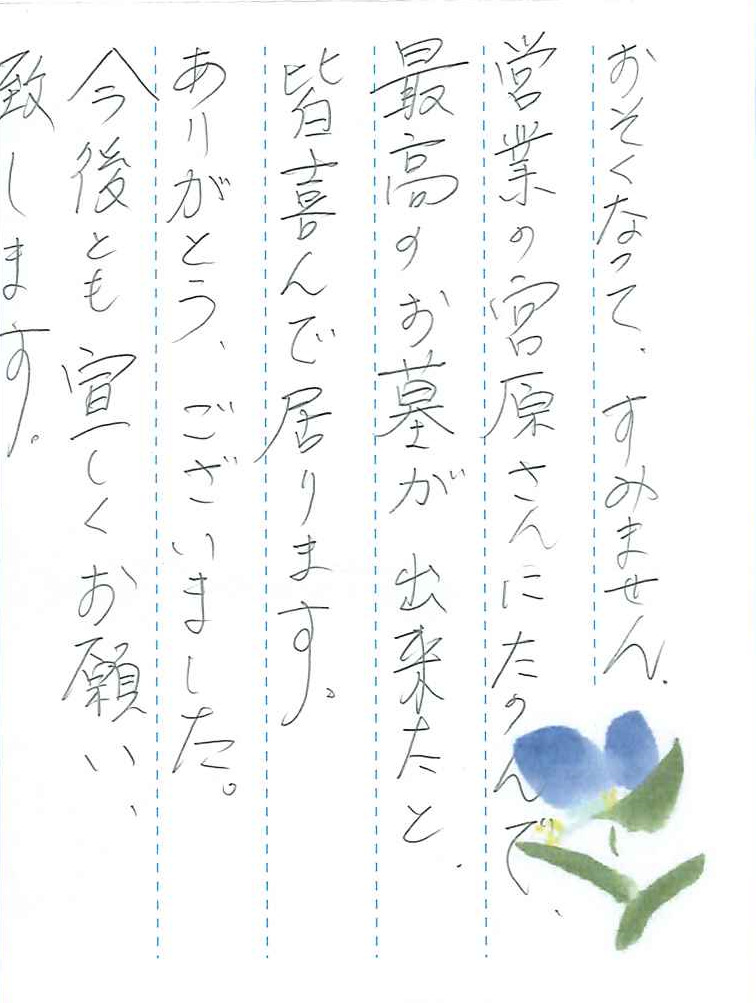 おそくなって、すみません.
営業の宮原さんにたのんで、
最高のお墓が出来たと.
皆喜んで居ります。
ありがとう、ございました。
今後とも宜しくお願い、
致します。